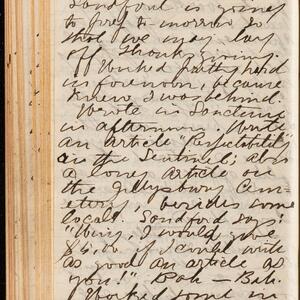 Sandford is going
to pay to-morrow so
that we may lay
off Thanksgiving.
Worked pretty hard
in forenoon, because
knew I was behind.
Wrote in Sanctum
in afternoon. Wrote
an article "Respectability"
in the Sentinel; also
a long article on
the Gettysburg Cem-
etery, besides some
locals. Sandford says:
"Wing, I would give
if I could write
as good an article as
you!" Bah — Bah.
Worked some in